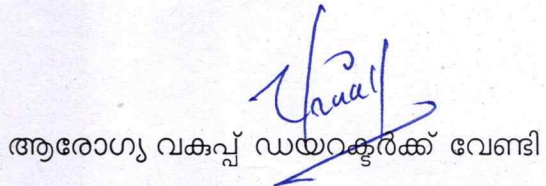 ആരോഗ്യ വകുപ്പ് ഡയറക്ടർക്ക് വേണ്ടി